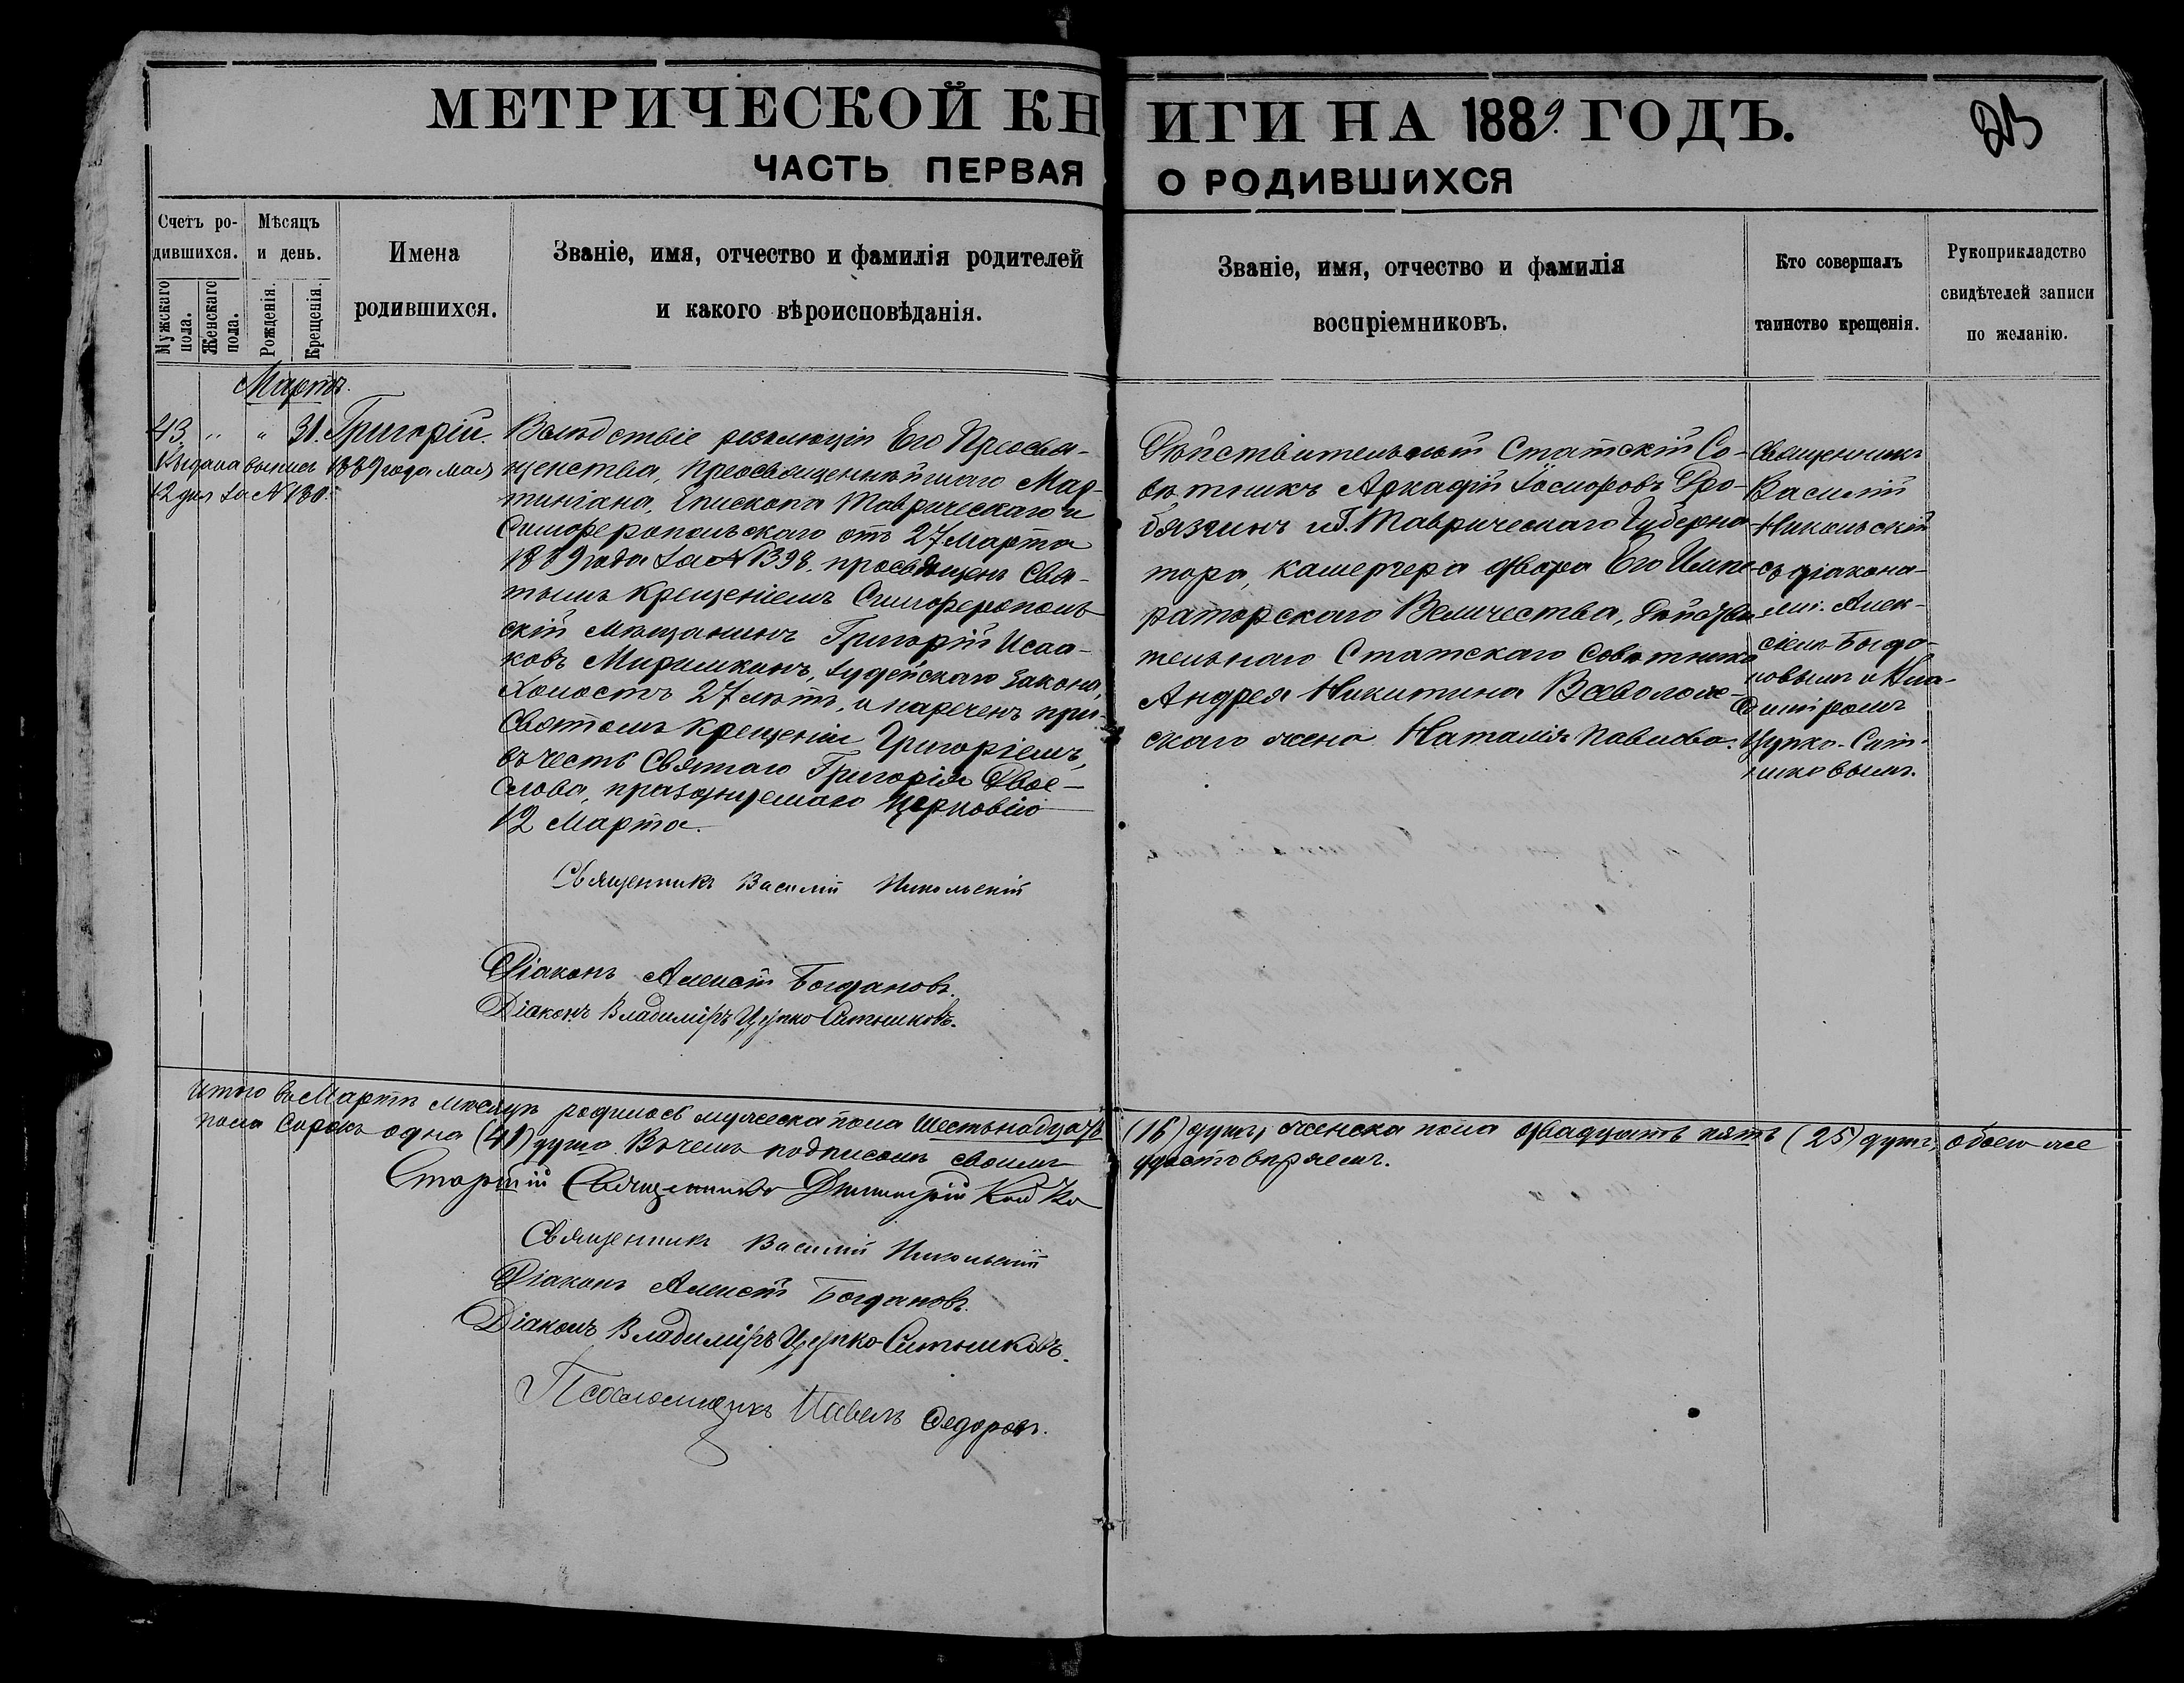 МЕТРИЧЕСКОЙ КНИГИ НА 1889. ГОДЪ.
23
ЧАСТЬ ПЕРВАЯ О РОДИВШИХСЯ
Счетъ ро-
дившихся.
Мужскаго пола.
Женскаго пола.
Мѣсяцъ
и день.
Рожденія.
Крещенія.
Имена
родившихся.
Званіе, имя, отчество и фамилія родителей
и какого вѣроисповѣданія.
Званіе, имя, отчество и фамилія
воспріемниковъ.
Кто совершалъ
таинство крещенія.
Рукоприкладство
свидѣтелей записи
по желанію.
Мартъ.
43. " " 31. Григорій.
Выдана выпись 1889 года мая
12 дня за №
Вслѣдствіе резолюціи Его Преосвя-
щенства, Преосвященнѣйшаго Мар-
тиніана, Епископа Таврическаго и
Симферопольскаго отъ 27 Марта
1889 года за № 1398. просвѣщенъ Свя-
тымъ Крещеніемъ Симферополь-
скій мѣщанинъ Григорій Исаа-
ковъ Миримкинъ, Іудейскаго закона,
холостъ 27 лѣтъ, и нареченъ при
Святомъ крещеніи Григоріемъ,
въ честь Святаго Григорія Двое-
слова, празднуемаго Церковію
12 Марта.
Священникъ Василій Никольскій
Діаконъ Алексѣй Богдановъ.
Діаконъ Владиміръ Цупко-Ситниковъ.
Дѣйствительный Статскій Со-
вѣтникъ Аркадій Дро-
бязгинъ и Г. Таврическаго Губерна-
тора, камергера двора Его Импе-
раторскаго Величества, Дѣйстви-
тельнаго Статскаго Совѣтника
Андрея Никитина Всеволож-
скаго жена Наталія Павлова.
Священникъ
Василій
Никольскій
съ діакона-
ми: Алек-
сѣемъ Богда-
новымъ и Вла-
диміромъ
Цупко-Сит-
никовымъ.
Итого въ Мартѣ мѣсяцѣ родилось мужеска пола шестьнадцать (16) душъ, женска пола двадцать пять (25) душъ, обоего же
пола сорокъ одна (41) душа. Въ чемъ подписомъ своимъ удостовѣряемъ.
Старшій Священникъ Димитрій Койко
Священникъ Василій Никольскій
Діаконъ Алексѣй Богдановъ.
Діаконъ Владиміръ Цупко-Ситниковъ.
Псаломщикъ Павелъ Федоровъ.